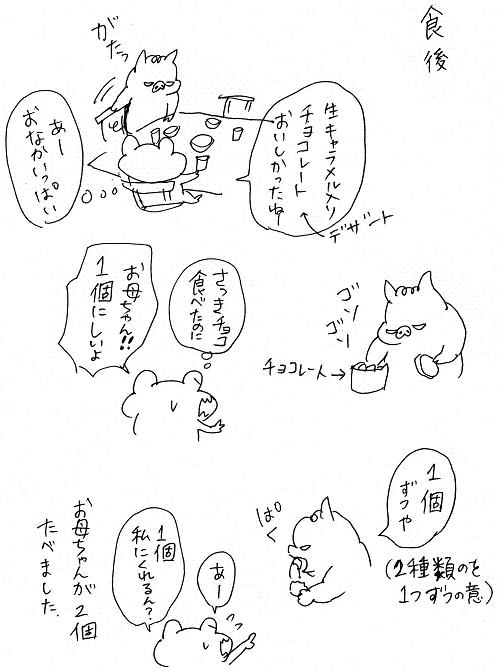 食後
がたっ
生キャラメル入り
チョコレート
おいしかったねー
デザート
あー
おなかいっぱい
ゴソ
ゴソ
チョコレート→
さっきチョコ
食べたのに
お母ちゃん!!
1個にしいよ
1個
ずつや
(2種類のを
1つずつの意)
ぱく
あー
1個
私にくれるん?
お母ちゃんが2個
たべました.